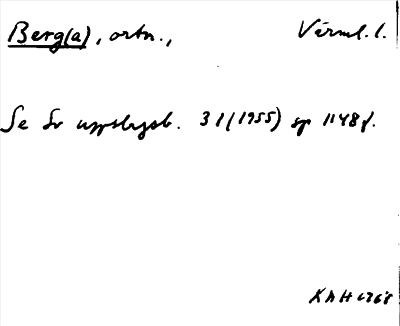 Berg(a), ortn., Värml. l.
Se Sv uppslagsb. 31(1955) sp 1148f.